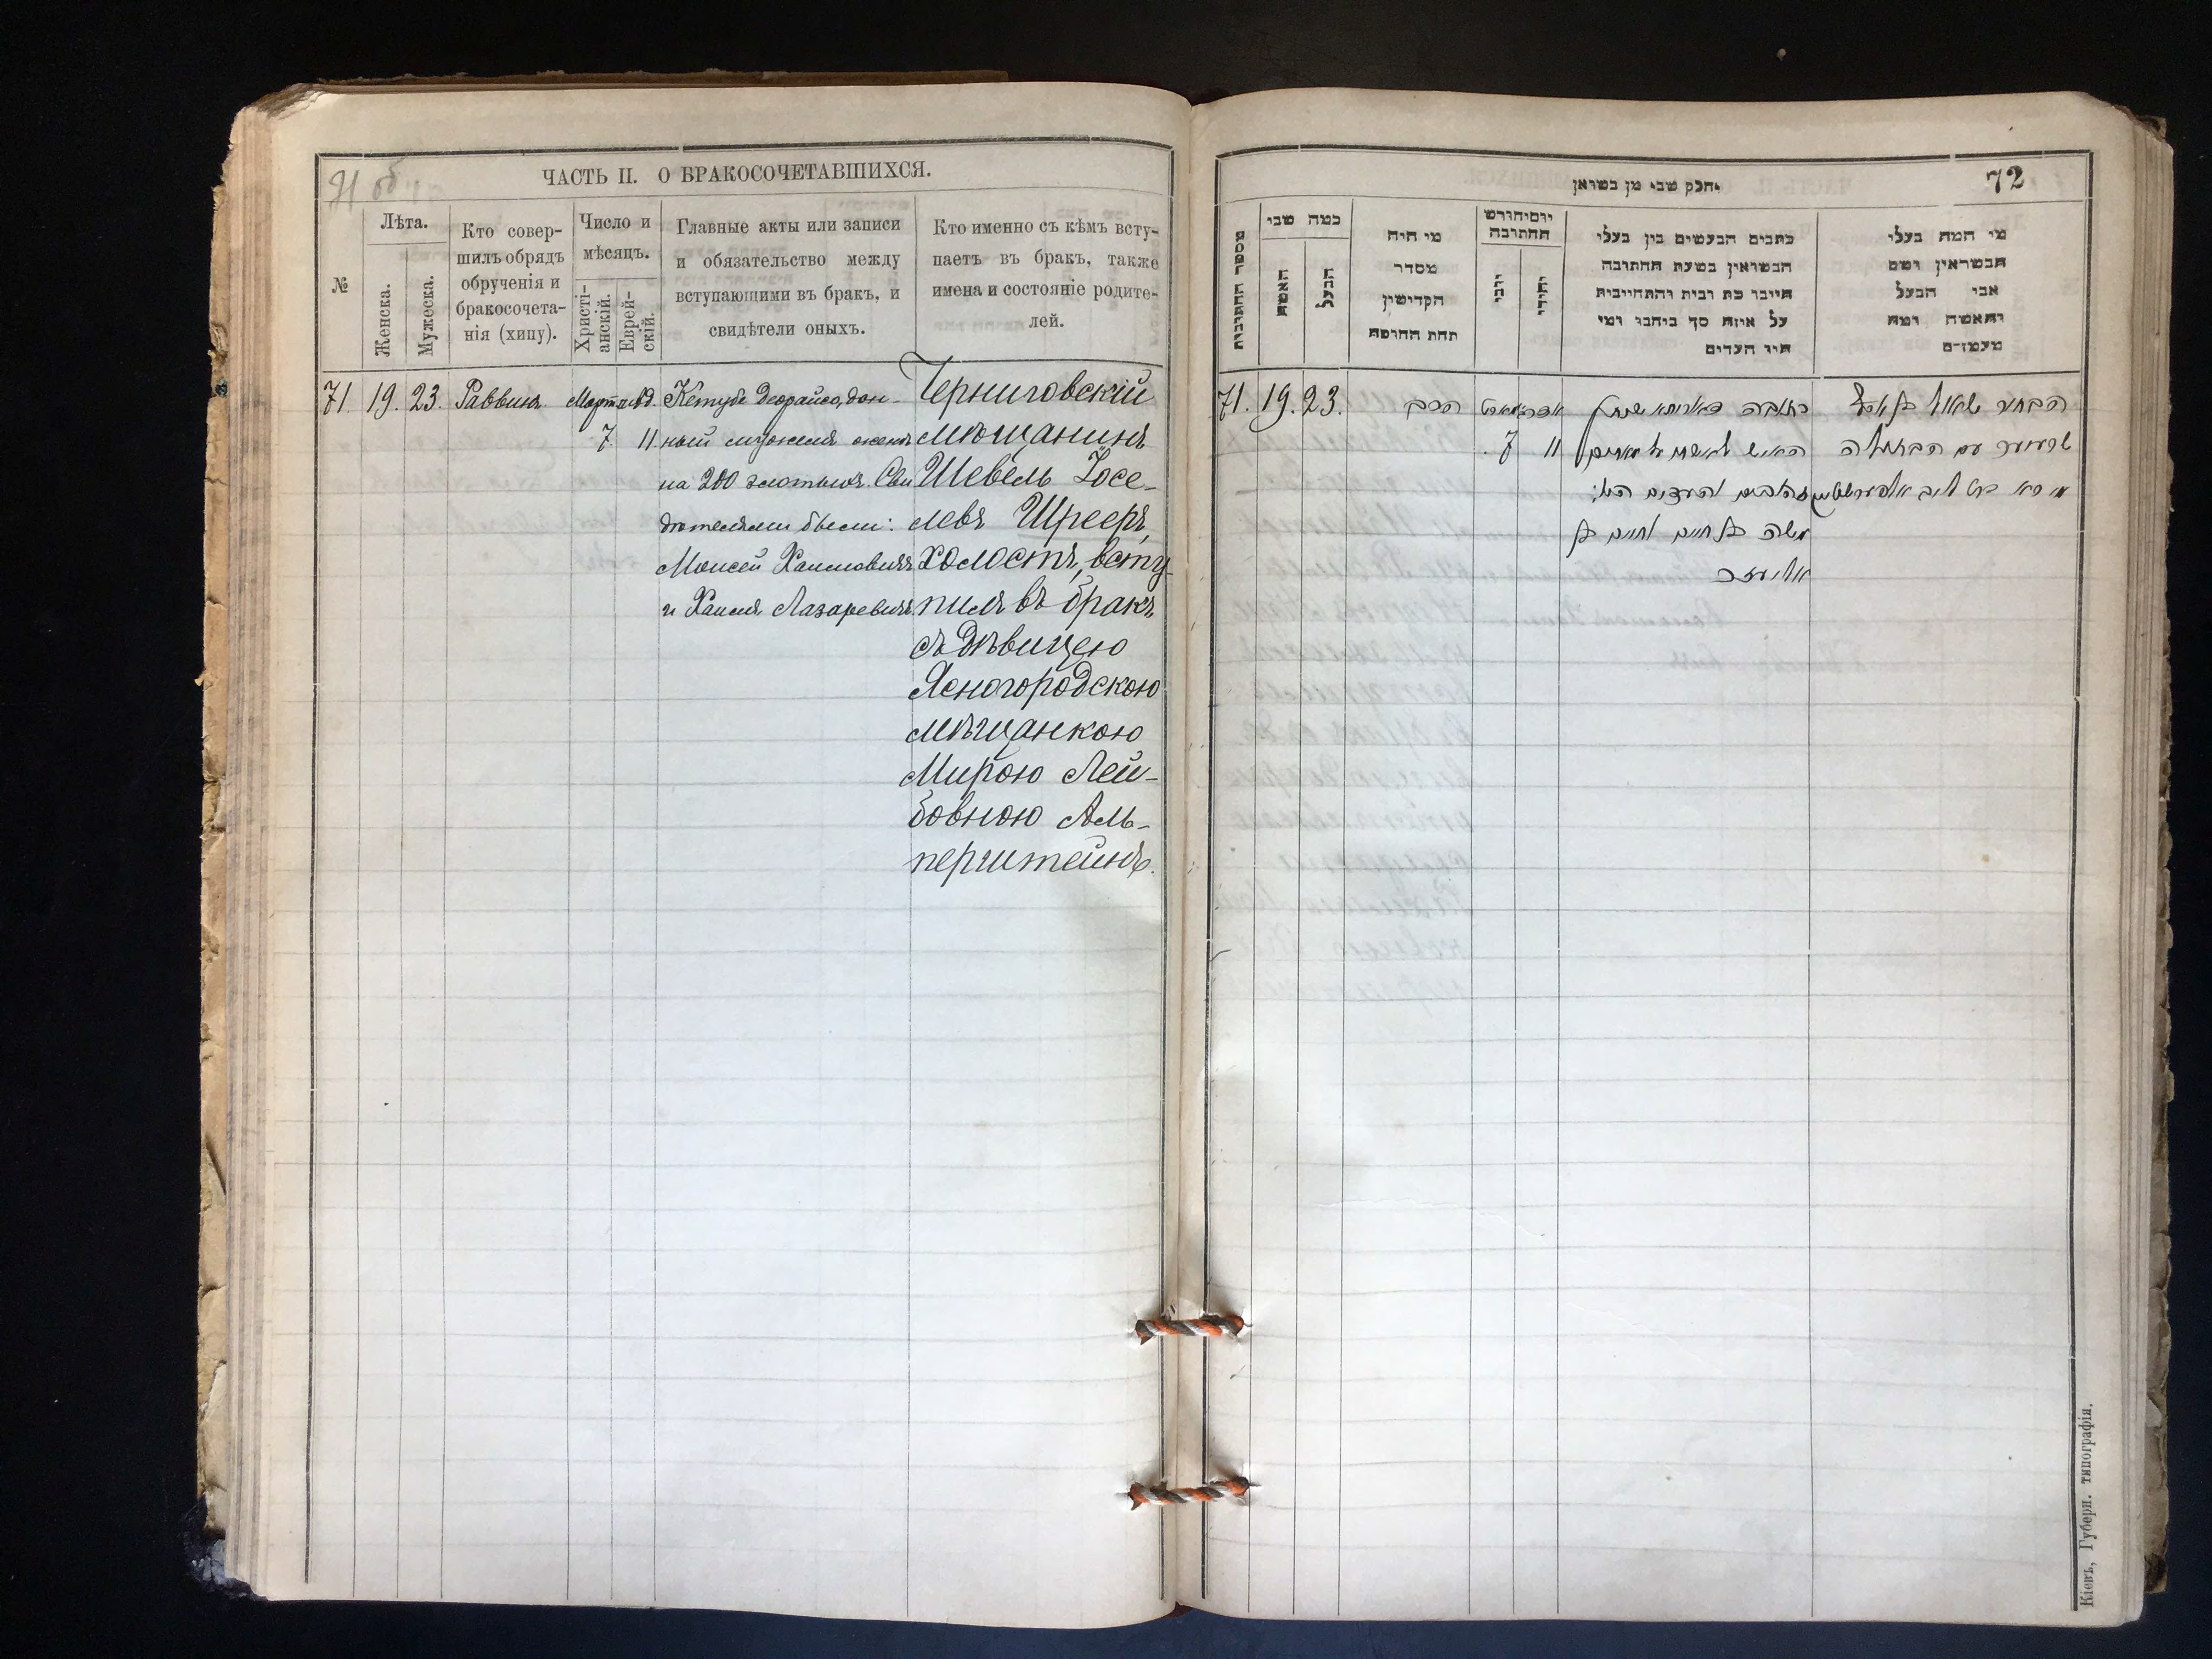 71 об
ЧАСТЬ II. О БРАКОСОЧЕТАВШИХСЯ.
№
Лѣта.
Женска.
Мужеска.
Кто совер-
шилъ обрядъ
обрученія и
бракосочета-
нія (хипу).
Число и
мѣсяцъ.
Христі-
анскій.
Еврей-
скій.
Главные акты или записи
и обязательство между
вступающими въ бракъ, и
свидѣтели оныхъ.
Кто именно съ кѣмъ всту-
паетъ въ бракъ, также
имена и состояніе родите-
лей.
71. 19. 23. Раввинъ. Мартъ
7. 11.
Кетубе Деорайсо, дан-
ный мужемъ женѣ
на 200 злотыхъ. Сви
дѣтелями были:
Моисей Хаимовичъ
и Хаимъ Лазаревичъ.
Черниговскій
мѣщанинъ
Шевель Іосе-
левъ Шрееръ,
холостъ, всту-
пилъ въ бракъ
съ дѣвицею
Ясногородскою
мѣщанкою
Мирою Лей-
бовною Аль-
перштейнъ.
72
וחלק שני מן נשואין
מספר החתונות
כמה שני
האשה
הבעל
מי היה
מסדר
הקדישין
תחת החופה
יום וחודש
החתונה
כתבים הנעשים בין בעלי
הנשואין בשעת החתונה
היינו כת ובית והתחייבות
על איזה סך ביחבו ומי
היו העדים
מי המה בעלי
הנשואין ושם
אבי הבעל
והאשה ומה
מעמדם
71. 19. 23. הרב
7. 11
כתובה דאורייתא שנתן
האיש לאשה
משה בן חיים וחיים בן
אליעזר
הבחור
שרייער עם הבתולה
Кіевъ, Губерн. типографія.